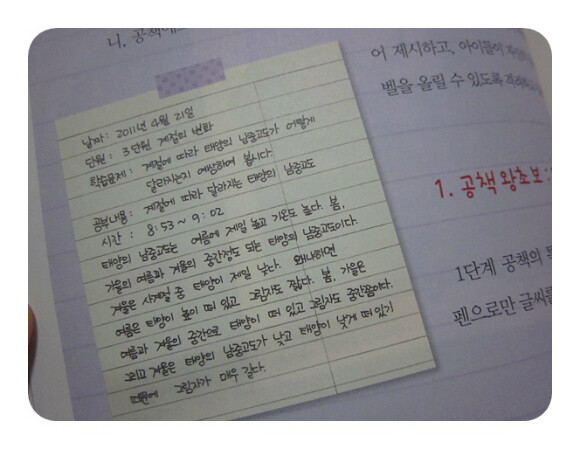 니. 공책에
어 제시하고, 아이들이
벨을 올릴 수 있도록 격려
날짜: 2011년 4월 21일
단원: 3단원 계절의 변화
학습문제: 계절에 따라 태양의 남중고도가 어떻게
달라지는지 예상하여 봅시다.
공부내용: 계절에 따라 달라지는 태양의 남중고도
시간: 8:53 ~ 9:02
태양의 남중고도는 여름에 제일 높고 기온도 높다. 봄,
가을의 여름과 겨울의 중간정도 되는 태양의 남중고도이다.
겨울은 사계절 중 태양이 제일 낮다. 왜냐하면
여름은 태양이 높이 떠 있고 그림자도 짧다. 봄, 가을은
여름과 겨울의 중간으로 태양이 떠 있고 그림자도 중간쯤이다.
그리고 겨울은 태양의 남중고도가 낮고 태양이 낮게 떠 있기
때문에 그림자가 매우 길다.
1. 공책 왕초보:
1단계 공책의
펜으로만 글씨를